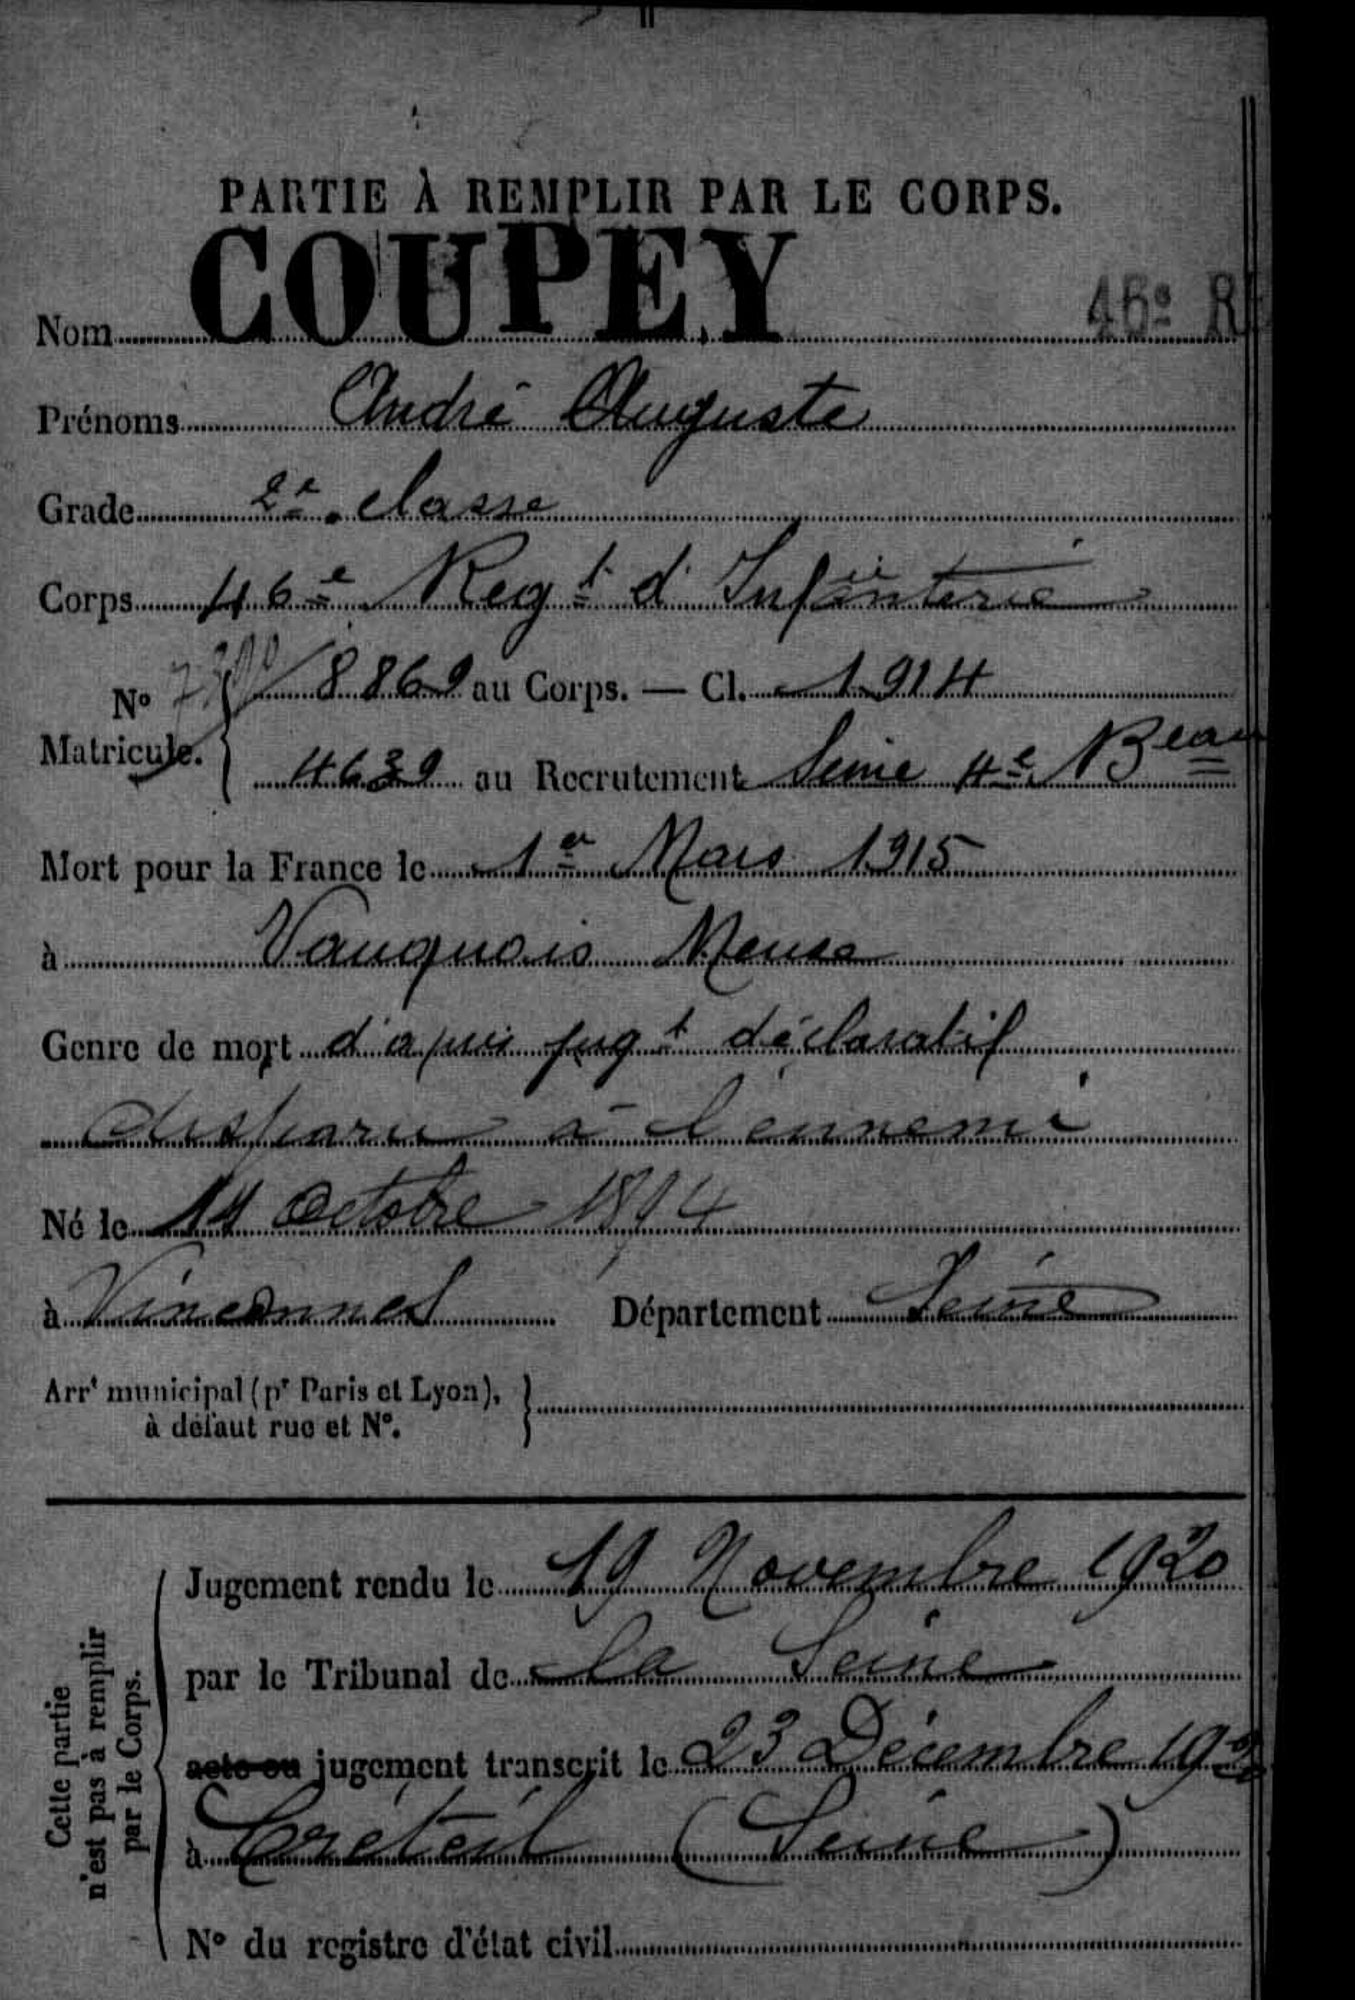 PARTIE À REMPLIR PAR LE CORPS.
46e
Nom COUPEY
Prénoms André Auguste
Grade 2e classe
Corps 46e Regt d'Infanterie
No Matricule. { 8869 au Corps. — Cl. 1914
4639 au Recrutement Seine 4e Beau
Mort pour la France le 1er Mars 1915
à Vauquois Meuse
Genre de mort d'après jugt déclaratif
disparu à l'ennemi
Né le 14 Octobre 1894
à Vincennes Département Seine
Arrt municipal (pr Paris et Lyon), à défaut rue et No. }
Cette partie n'est pas à remplir par le Corps.
Jugement rendu le 19 Novembre 1920
par le Tribunal de la Seine
acte ou jugement transcrit le 23 Décembre 1920
à Créteil (Seine)
No du registre d'état civil